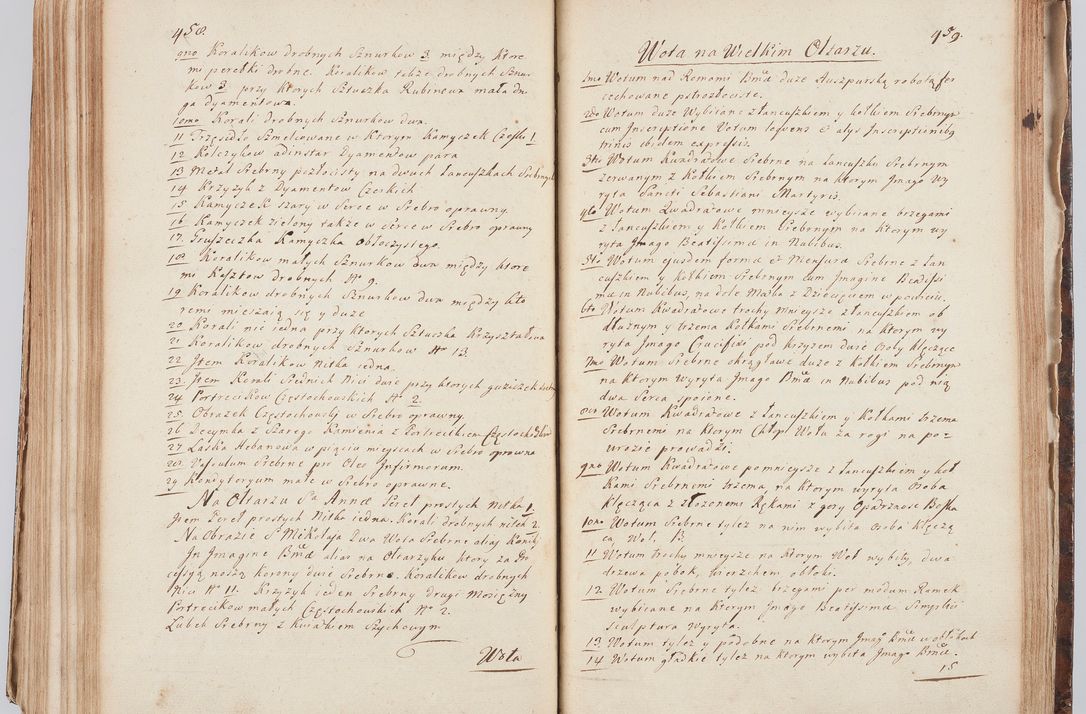 458.
9no Koralikow drobnych Sznurkow 3 między ktore
mi perełki drobne. Koralikow także drobnych Sznur
kow 3 przy ktorych Sztuczka Rubinowa mała dru
ga dyamentowa.
10mo Korali drobnych Sznurkow dwa.
11 Trzęsidło Szmelcowane w Ktorym Kamyczek Czeski 1
12 Kolczykow adinstar Dyamentow para
13 Metal Srebrny pozłocisty na dwuch Łancuszkach Srebrnych
14 Krzyżyk z Dyamentow Czeskich
15 Kamyczek szary w Serce w Srebro oprawny.
16 Kamyczek zielony także w Serce w Srebro oprawny
17. Gruszeczka Kamyczka Obłoczystego.
18 Koralikow małych Sznurkow dwa między ktore
mi Kosztow drobnych No 9.
19 Koralikow drobnych Sznurkow dwa między kto
remi mieszaią się y duze
20 Korali nic iedna przy ktorych Sztuczka Krzyształowa
21 Koralikow drobnych Sznurkow No 13.
22 Item Koralikow Nitka iedna.
23. Item Korali Srednich Nici dwie przy ktorych guziczek
24 Portrecikow Częstochowskich No 2.
25. Obrazek Częstochowski w Srebro oprawny.
26 Decymka z Szarego Kamienia z Portrecikiem Częstochowskim
27 Laska Hebanowa w pięciu mieyscach w Srebro oprawna
28. Vasculum Srebrne pro Oleo Infirmorum.
29 Kondytoryum małe w Srebro oprawne.
Na Ołtarzu S. Annæ Pereł prostych nitka 1.
Item Pereł prostych Nitka iedna. Korali drobnych nitek 2.
Na Obrazie S Mikołaja Dwa Wota Srebrne alias
In Imagine BMæ alias na Ołtarzyku ktory za Pro
cessyą noszą Korony dwie Srebrne. Koralikow drobnych
Nici No 11. Krzyżyk ieden Srebrny drugi Mosiężny
Portrecikow małych Częstochowskich No 2.
Lubek Srebrny z Kwiatkiem Szychowym
Wota
459.
Wota na Wielkim Ołtarzu.
1mo Wotum nad Koronami BMæ duże Auszpurską robotą
cechowane pstrozłociste.
2do Wotum duże Wybiiane z łancuszkiem y kołkiem Srebrnym
cum Inscriptione Votum & alys Inscriptionibus
trinis ibidem expressis.
3tio Wotum Kwadratowe Srebrne na Łancuszku Srebrnym
zerwanym z Kołkiem Srebrnym na ktorym Imago Wy
ryta Sancti Sebastiani Martyris.
4to Wotum Quadratowe mnieysze wybiiane brzegami
z Łancuszkiem y Kołkiem Srebrnym na ktorym wy
ryta Imago Beatissimæ in Nubibus.
5to Wotum ejusdem forma & Mensura Srebrne z łan
cuszkiem y kołkiem Srebrnym cum Imagine Beatissi
mæ in Nubibus, na dole Matka z Dziecięciem w powiciu.
6to Wotum Kwadratowe trochy mnieysze z łancuszkiem ob
dłużnym y trzema Kołkami Srebrnemi na ktorym wy
ryta Imago Crucifixi pod krzyżem dwie Osoby Klęczące
7mo Wotum Srebrne okrągławe duże z kołkiem Srebrnym
na ktorym wyryta Imago BMæ in Nubibus pod nią
dwa Serca spoione.
8vo Wotum Kwadratowe z Łancuszkiem y Kołkami trzema
Srebrnemi na ktorym Chłop Wołu za rogi na po
wrozie prowadzi.
9no Wotum Kwadratowe pomnieysze z Łancuszkiem y koł
kami Srebrnemi trzema, na ktorym wyryta Osoba
Klęcząca z złożonemi Rękami z gory Opatrznosć Boska
10mo Wotum Srebrne tyleż na nim wybita Osoba Klęczą
ca
11 Wotum trochy mnieysze na ktorym Woł wybity, dwa
drzewa pobok, wierzchem obłoki.
12 Wotum Srebrne tyleż brzegami per modum Ramek
wybiiane na ktorym Imago Beatissimæ Simplici
sculptura wyryta.
13. Wotum tyleż y podobne na ktorym Imago BMæ w obłokach
14 Wotum gładkie tyleż na ktorym wybita Imago BMæ.
15